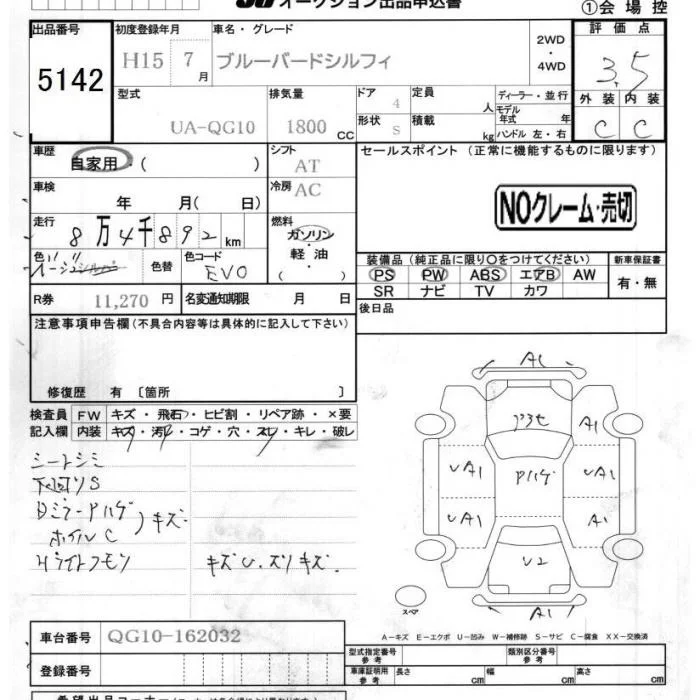 オークション出品申込書
①会場控
出品番号
5142
初度登録年月
H15 7月
車名・グレード
ブルーバードシルフィ
2WD
・
4WD
評価点
3.5
外装 内装
C C
型式
UA-QG10
排気量
1800 CC
ドア
4
形状
S
定員
人
積載
kg
ディーラー・並行
モデル年式 年
ハンドル 左・右
車歴
自家用・( )
シフト
AT
車検
年 月( 日)
冷房
AC
走行
8万4千892 km
燃料
ガソリン
・
軽油
( )
色
色替
色コード
EV0
R券
11,270 円
名変通知期限 月 日
セールスポイント (正常に機能するものに限ります)
NOクレーム・売切
装備品(純正品に限り○をつけてください)
PS PW ABS エアB AW
SR ナビ TV カワ
新車保証書
有・無
後日品
注意事項申告欄(不具合内容等は具体的に記入して下さい)
修復歴 有 〔箇所 〕
検査員記入欄
FW キズ・飛石・ヒビ割・リペア跡・×要
内装 キズ・汚れ・コゲ・穴・スレ・キレ・破レ
シートシミ
下回りS
ホイルC
キズ
キズU.ズリキズ.
A1
A1
UA1
UA1
UA1
A1
U2
A1
スペア
A−キズ E−エクボ U−凹み W−補修跡 S−サビ C−腐食 XX−交換済
車台番号
QG10-162032
登録番号
型式指定番号
参考
類別区分番号
参考
車庫証明用
参考
長さ cm
幅 cm
高さ cm